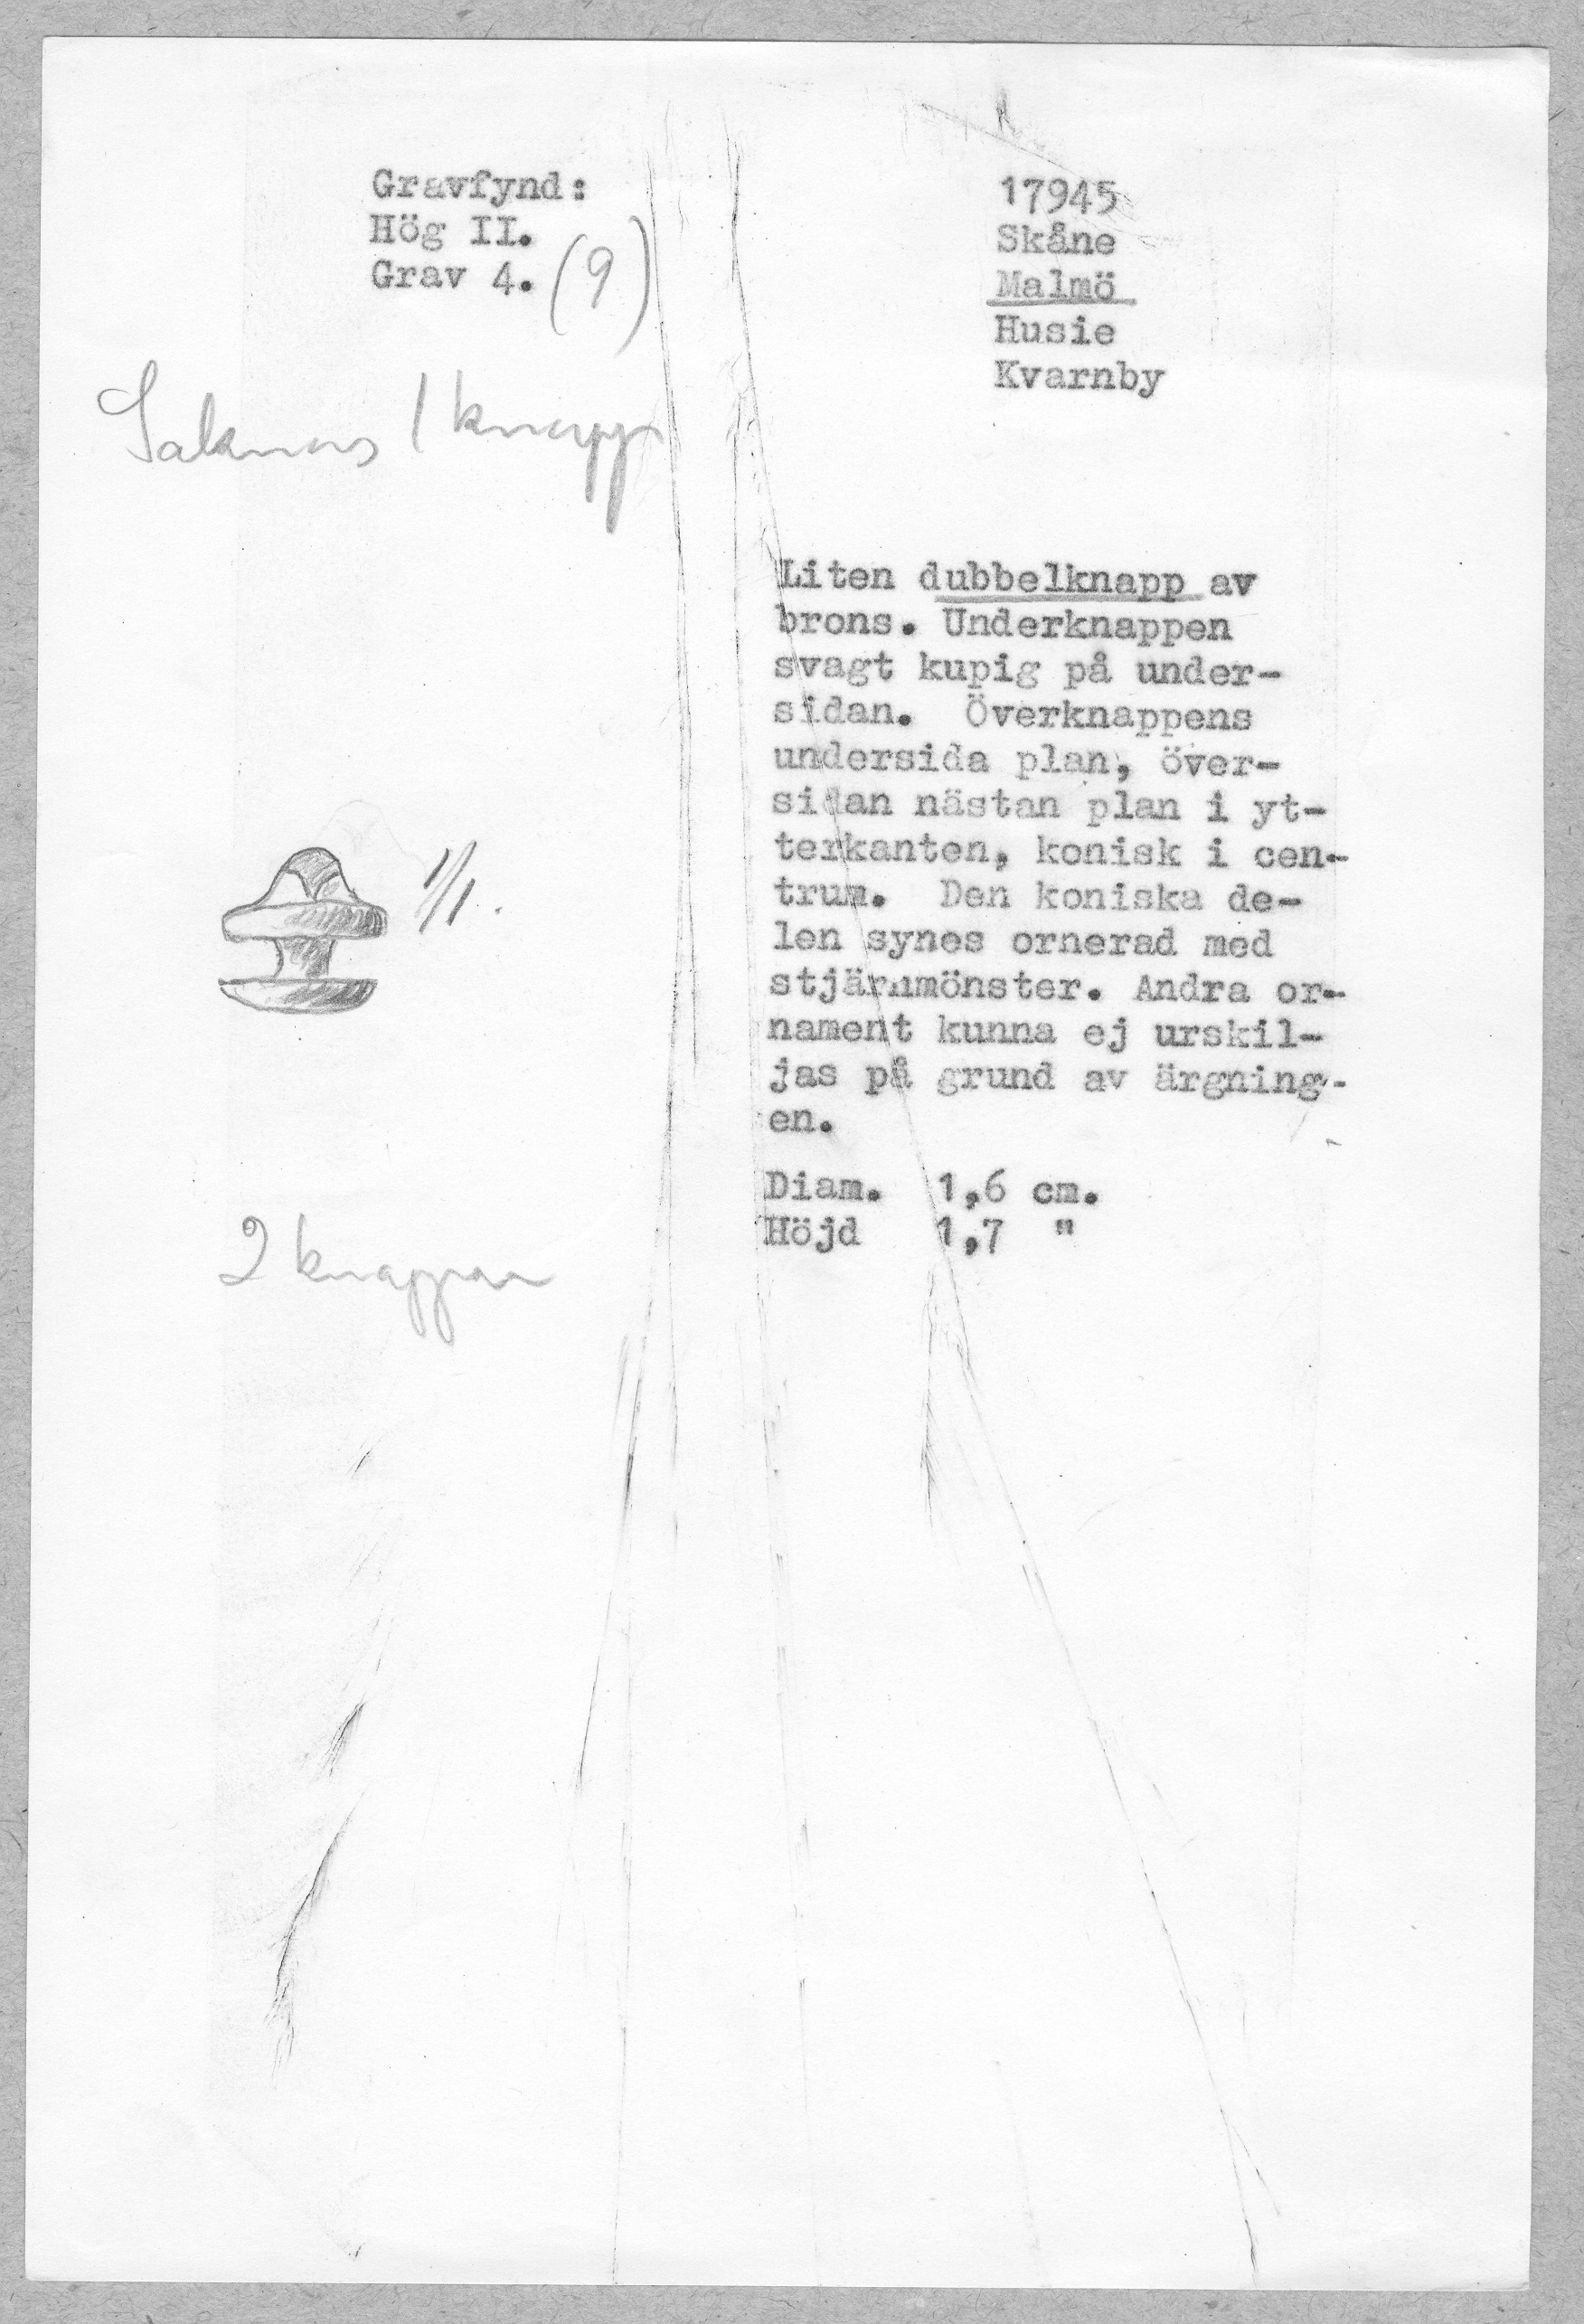 Gravfynd:
Hög II.
Grav 4. (9)
17945
Skåne
Malmö
Husie
Kvarnby
Saknas 1 knapp
Liten dubbelknapp av
brons. Underknappen
svagt kupig på under-
sidan. Överknappens
undersida plan, över-
sidan nästan plan i yt-
terkanten, konisk i cen-
trum. Den koniska de-
len synes ornerad med
stjärnmönster. Andra or-
nament kunna ej urskil-
jas på grund av ärgning-
en.
1/1.
Diam. 1,6 cm.
Höjd 1,7 "
2 knappar